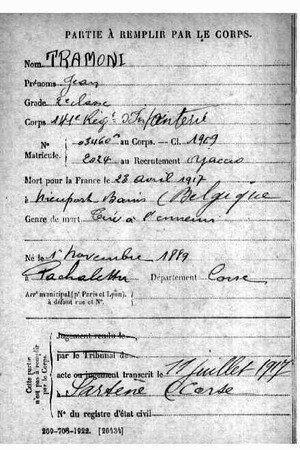 PARTIE À REMPLIR PAR LE CORPS.
Nom TRAMONI
Prénoms Jean
Grade 2e classe
Corps 141e Régt d'Infanterie
N° 03460 au Corps. — Cl. 1909
Matricule. 2024 au Recrutement Ajaccio
Mort pour la France le 23 avril 1917
à Nieuport Bains (Belgique)
Genre de mort Tué à l'ennemi
Né le 1er Novembre 1889
à Département Corse
Arrt municipal (pr Paris et Lyon),
à défaut rue et N°.
Cette partie n'est pas à remplir par le Corps.
Jugement rendu le
par le Tribunal de
acte ou jugement transcrit le 11 juillet 1917
à Sartène Corse
N° du registre d'état civil
269-708-1922. [26434]